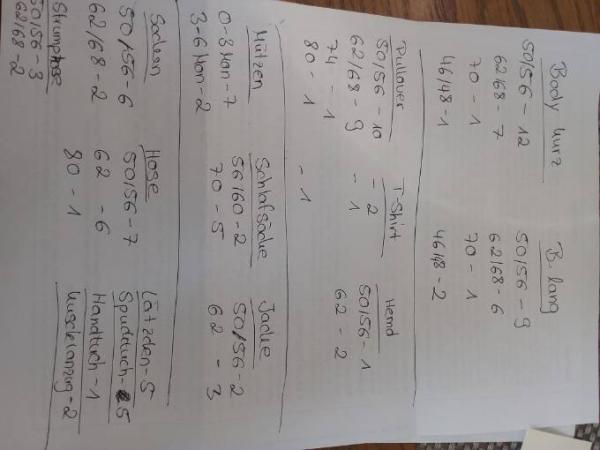 Body kurz
50/56 - 12
62/68 - 7
70 - 1
46/48 - 1
B. lang
50/56 - 9
62/68 - 6
70 - 1
46/48 - 2
Pullover
50/56 - 10
62/68 - 9
74 - 1
80 - 1
T-Shirt
- 2
- 1
- 1
Hemd
50/56 - 1
62 - 2
Mützen
0-3 Mon - 7
3-6 Mon - 2
Schlafsäcke
56/60 - 2
70 - 5
Jacke
50/56 - 2
62 - 3
Socken
50/56 - 6
62/68 - 2
Strumphose
50/56 - 3
62/68 - 2
Hose
50/56 - 7
62 - 6
80 - 1
Lätzchen - 5
Spucktuch - 5
Handtuch - 1
Kuschelanzug - 2